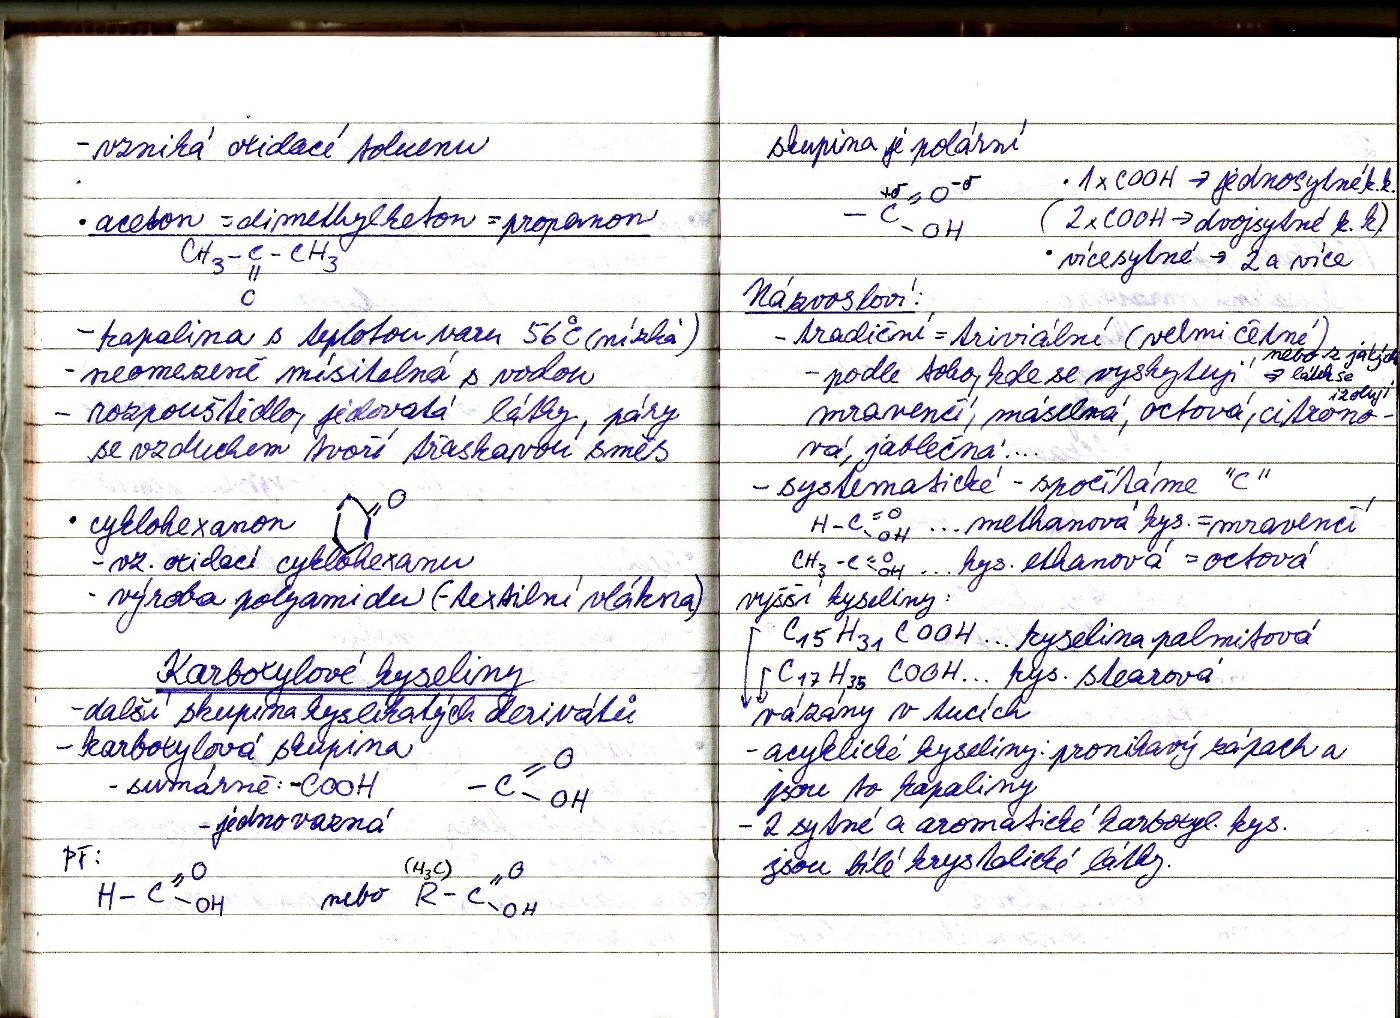 - vzniká oxidací toluenu
• aceton = dimethylketon = propanon
CH3 - C - CH3
||
O
- kapalina s teplotou varu 56°C (nízká)
- neomezeně mísitelná s vodou
- rozpouštědlo, jedovatá látky, páry
se vzduchem tvoří třaskavou směs
• cyklohexanon
O
- vz. oxidací cyklohexanu
- výroba polyamidu (-textilní vlákna)
Karboxylové kyseliny
- další skupina kyslíkatých derivátů
- karboxylová skupina
- sumárně: -COOH
- C = O - OH
- jednovazná
Př:
H - C = O - OH nebo (H3C) R - C = O - OH
skupina je polární
- C +δ = O -δ - OH
• 1xCOOH → jednosytné k.k.
(2xCOOH → dvojsytné k.k)
• vícesytné → 2 a více
Názvosloví:
- tradiční = triviální (velmi četné)
- podle toho, kde se vyskytují → nebo z jakých látek se izolují
mravenčí, máselná, octová, citrono-
vá, jablečná....
- systematické - spočítáme "C"
H - C = O - OH ... methanová kys. = mravenčí
CH3 - C = O - OH ... kys. ethanová = octová
vyšší kyseliny:
C15 H31 COOH ... kyselina palmitová
C17 H35 COOH ... kys. stearová
vázány v tucích
- acyklické kyseliny: pronikavý zápach a
jsou to kapaliny
- 2 sytné a aromatické karboxyl. kys.
jsou bílé krystalické látky.